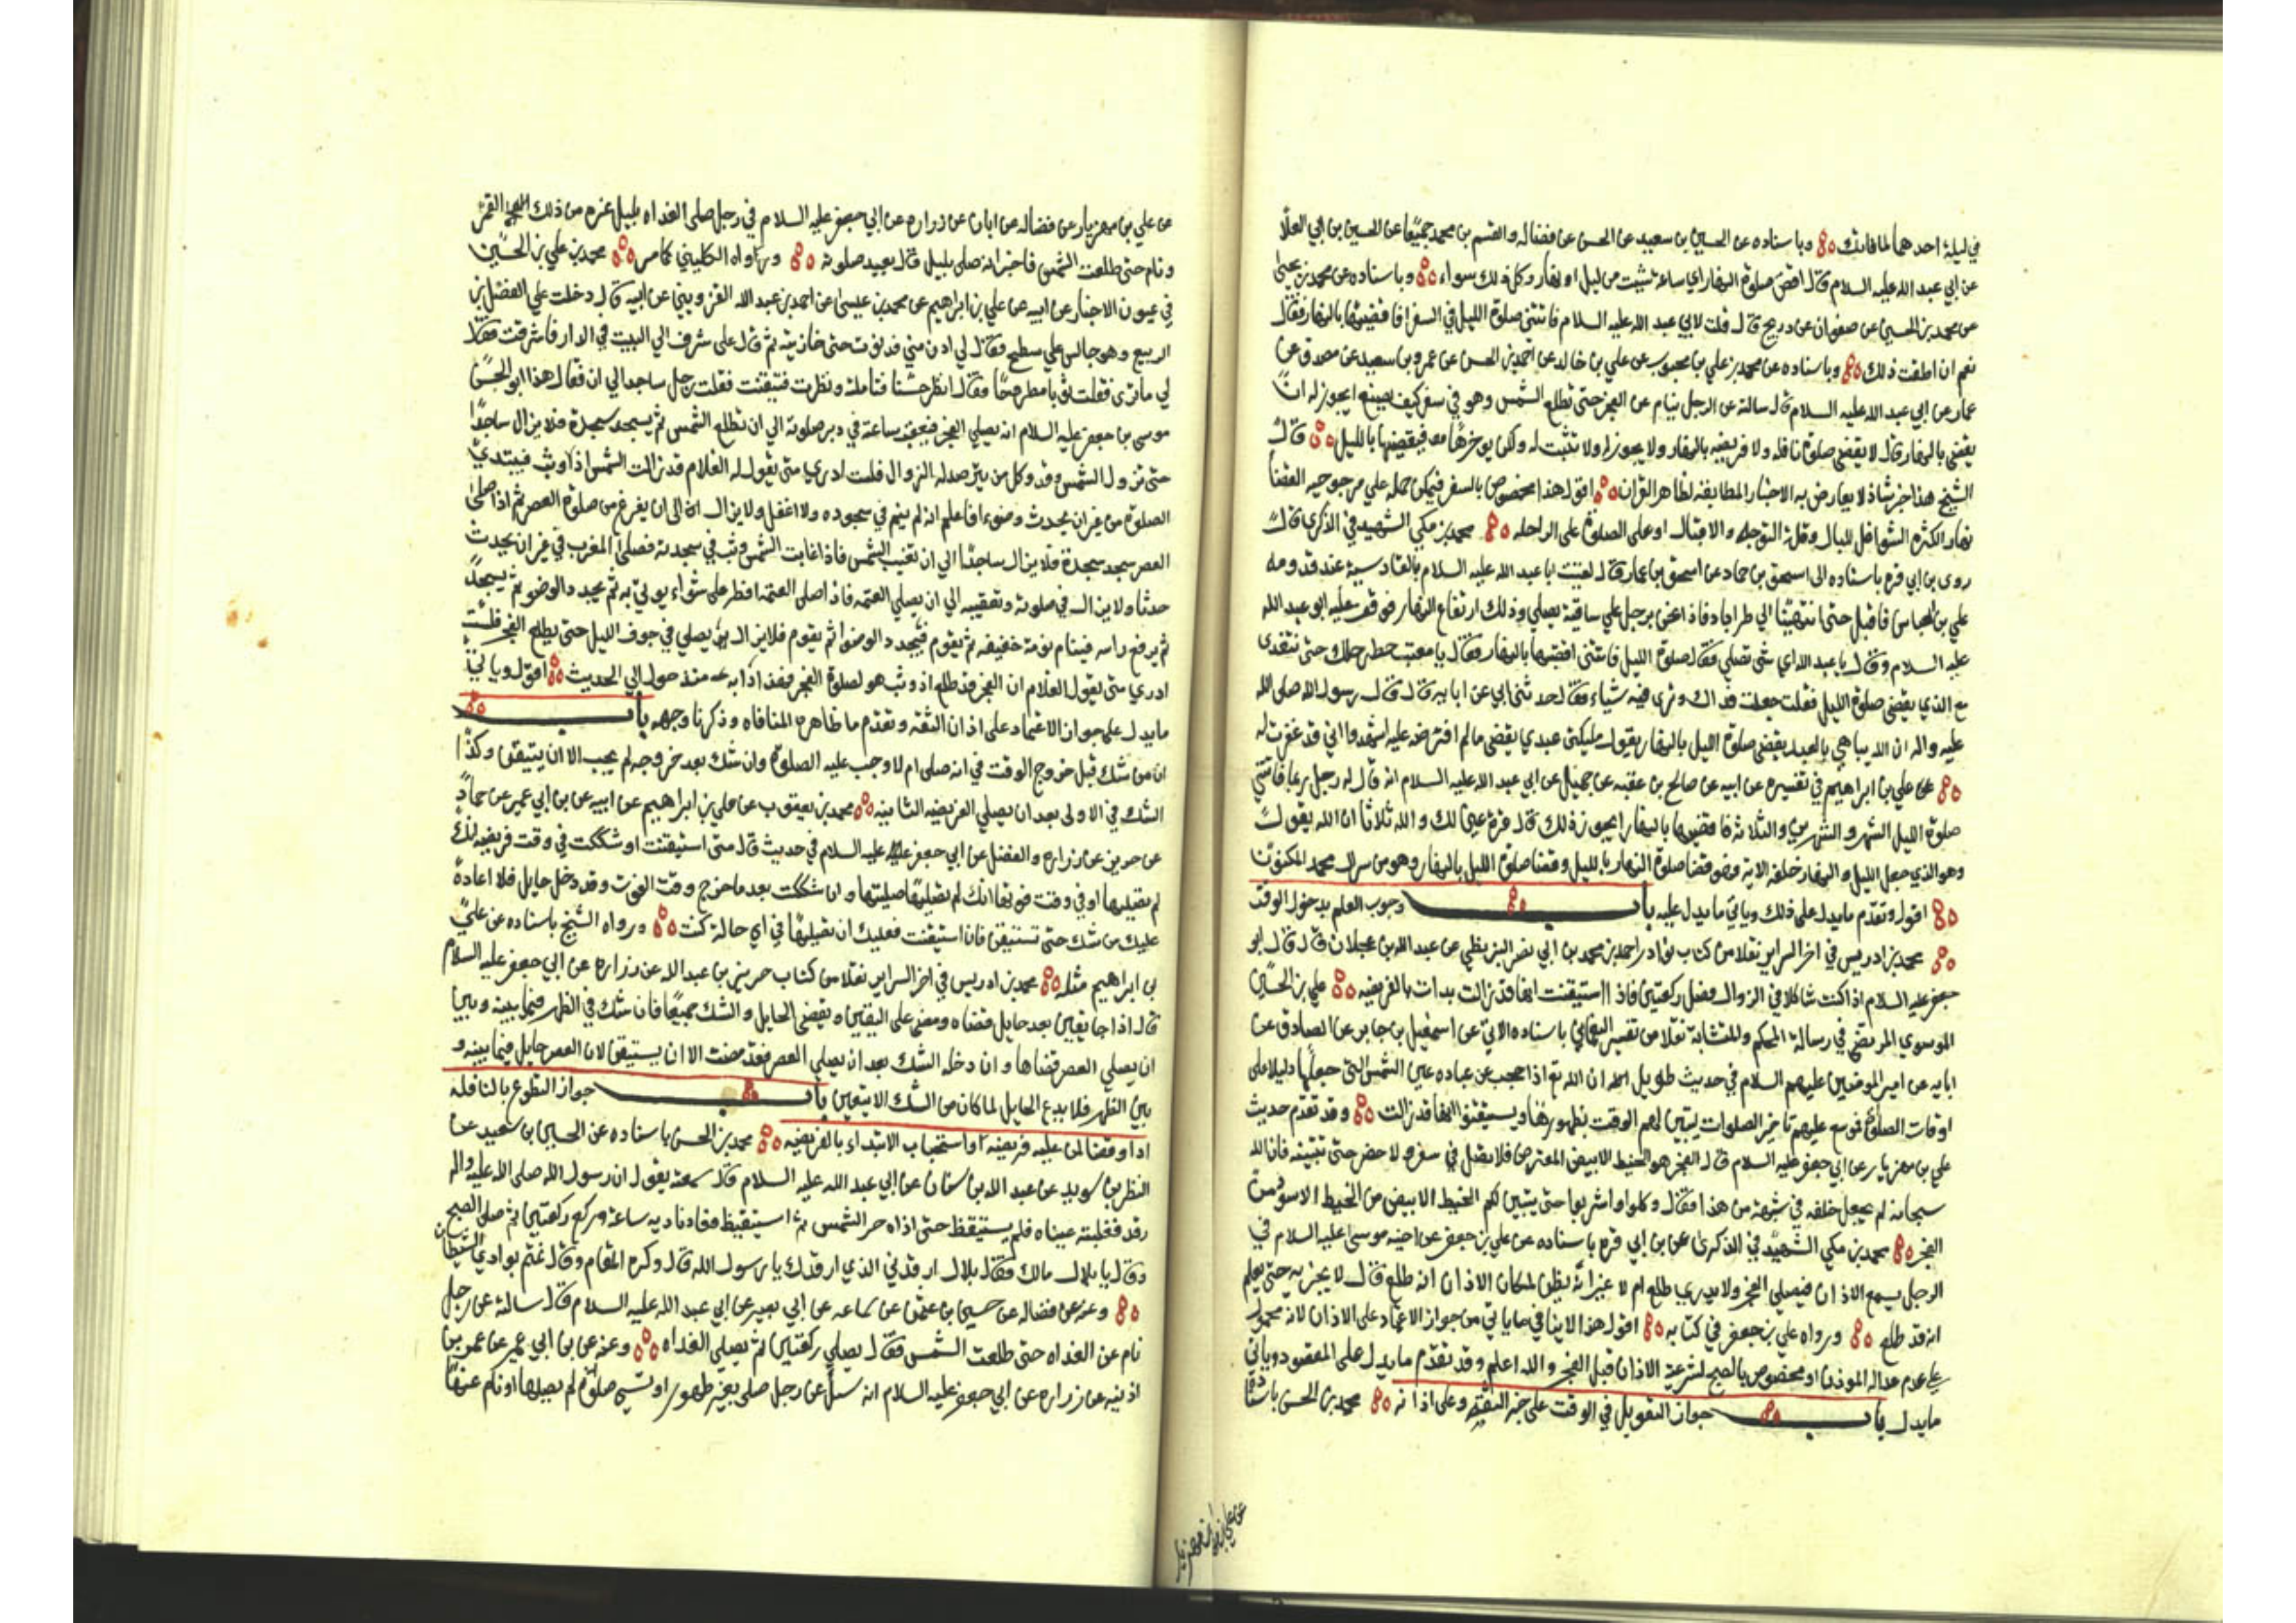 في ليلة احدهما لما فاتك وباسناده عن الحسين بن سعيد عن الحسن عن فضاله والقسم بن محمد جميعا عن الحسين بن ابي العلا
عن ابي عبد الله عليه السلام قال اقض صلوة النهار اي ساعة شيت من ليل او نهار وكل ذلك سواء وباسناده عن محمد بن يحيى
عن محمد بن الحسين عن صفوان عن ذريح قال قلت لابي عبد الله عليه السلام فاتتني صلوة الليل في السفر افاقضيها بالنهار فقال
نعم ان اطقت ذلك وباسناده عن محمد بن علي بن محبوب عن علي بن خالد عن احمد بن الحسن عن عمرو بن سعيد عن مصدق عن
عمار عن ابي عبد الله عليه السلام قال سالته عن الرجل ينام عن الفجر حتى تطلع الشمس وهو في سفر كيف يصنع ايجوز له ان
يقضي بالنهار قال لا يقضي صلوة نافله ولا فريضه بالنهار ولا يجوز له ولا تثبت له ولكن يوخرها فيقضيها بالليل قال
الشيخ هذا خبر شاذ لا يعارض به الاخبار المطابقه لظاهر القران اقول هذا مخصوص بالسفر فيمكن حمله علي مرجوحيه القضا
نهارا لكثره الشواغل للبال وقلة التوجه والاقبال او على الصلوة على الراحله محمد بن مكي الشهيد في الذكري قال
روى بن ابي قره باسناده الى اسحق بن حماد عن اسحق بن عمار قال لقيت ابا عبد الله عليه السلام بالقادسية عند قدومه
علي بن العباس فاقبل حتى انتهينا الي طراباد فاذا نحن برجل علي ساقية يصلي وذلك ارتفاع النهار فوقف عليه ابو عبد الله
عليه السلام وقال يا عبد الله اي شي تصلي فقال صلوة الليل فاتتني اقضيها بالنهار فقال يا معتب حط رحلك حتى نتغدى
مع الذي يقضي صلوة الليل فقلت جعلت فداك وتري فيه شياء فقال حدثني ابي عن ابايه قال قال رسول الله صلى الله
عليه واله ان الله يباهي بالعبد يقضي صلوة الليل بالنهار يقول مليكتي عبدي يقضي مالم افترضه عليه اشهدوا اني قد غفرت له
عن علي بن ابراهيم في تفسيره عن ابيه عن صالح بن عقبه عن جميل عن ابي عبد الله عليه السلام انه قال له رجل ربما فاتتني
صلوة الليل الشهر والشهرين والثلاثه فاقضيها بالنهار ايجوز ذلك قال قرة عين لك والله ثلاثا ان الله يقول
وهو الذي جعل الليل والنهار خلفه الاية فهو قضا صلوة النهار بالليل وقضا صلوة الليل بالنهار وهو من سر ال محمد المكنون
اقول وتقدم مايدل على ذلك وياتي مايدل عليه باب وجوب العلم بدخول الوقت
محمد بن ادريس في اخر السراير نقلا من كتاب نوادر احمد بن محمد بن ابي نصر البزنطي عن عبد الله بن عجلان قال قال ابو
جعفر عليه السلام اذا كنت شاكا في الزوال فصل ركعتين فاذا استيقنت انها قد زالت بدات بالفريضه علي بن الحسين
الموسوي المرتضى في رسالة المحكم والمتشابه نقلا من تفسير النعماني باسناده الاتي عن اسمعيل بن جابر عن الصادق عن
ابايه عن امير المومنين عليهم السلام في حديث طويل ان الله تع اذا حجب عن عباده عين الشمس التي جعلها دليلا على
اوقات الصلوة فموسع عليهم تاخير الصلوات ليتبين لهم الوقت بظهورها ويستيقنوا انها قد زالت وقد تقدم حديث
علي بن مهزيار عن ابي جعفر عليه السلام قال الفجر هو الخيط الابيض المعترض فلا تصل في سفر ولا حضر حتى تتبينه فان الله
سبحانه لم يجعل خلقه في شبهة من هذا فقال وكلوا واشربوا حتى يتبين لكم الخيط الابيض من الخيط الاسود من
الفجر محمد بن مكي الشهيد في الذكرى عن بن ابي قره باسناده عن علي بن جعفر عن اخيه موسى عليه السلام في
الرجل يسمع الاذان فيصلي الفجر ولا يدري طلع ام لا غير انه يظن لمكان الاذان انه طلع قال لا يجزيه حتى يعلم
انه قد طلع ورواه علي بن جعفر في كتابه اقول هذا لا ينافي ماياتي من جواز الاعتماد على الاذان لانه محمول
علي عدم عداله الموذن او مخصوص بالصبح لشرعية الاذان قبل الفجر والله اعلم وقد تقدم مايدل على المقصود وياتي
مايدل باب جواز التعويل في الوقت على خبر الثقه وعلى اذانه محمد بن الحسن باسناده
عن علي بن مهزيار
عن علي بن مهزيار عن فضاله عن ابان عن زراره عن ابي جعفر عليه السلام في رجل صلى الغداه بليل غره من ذلك القمر
ونام حتى طلعت الشمس فاخبر انه صلى بليل قال يعيد صلوته ورواه الكليني كما مر محمد بن علي بن الحسين
في عيون الاخبار عن ابيه عن علي بن ابراهيم عن محمد بن عيسى عن احمد بن عبد الله القزويني عن ابيه قال دخلت علي الفضل بن
الربيع وهو جالس علي سطح فقال لي ادن مني فدنوت حتى حاذيته ثم قال لي اشرف الي البيت في الدار فاشرفت فقال
لي ماترى فقلت ثوبا مطروحا فقال انظر حسنا فتاملت ونظرت فتيقنت فقلت رجل ساجد الي ان قال هذا ابو الحسن
موسى بن جعفر عليه السلام انه يصلي الفجر فيعقب ساعة في دبر صلوته الي ان تطلع الشمس ثم يسجد سجدة فلا يزال ساجدا
حتى تزول الشمس وقد وكل من يترصد له الزوال فلست ادري متى يقول له الغلام قد زالت الشمس اذ وثب فيبتدي
الصلوة من غير ان يحدث وضوءا فاعلم انه لم ينم في سجوده ولا اغفل ولا يزال الى ان يفرغ من صلوة العصر ثم اذا صلى
العصر سجد سجدة فلا يزال ساجدا الي ان تغيب الشمس فاذا غابت الشمس وثب في سجدته فصلى المغرب في غير ان يحدث
حدثا ولا يزال في صلوته وتعقيبه الي ان يصلي العتمه فاذا صلى العتمه افطر على شواء يوتي به ثم يجدد الوضو ثم يسجد
ثم يرفع راسه فينام نومة خفيفه ثم يقوم فيجدد الوضوء ثم يقوم فلا يزال يصلي في جوف الليل حتى يطلع الفجر فلست
ادري متى يقول الغلام ان الفجر قد طلع اذ وثب هو لصلوة الفجر فهذا دابه منذ حول الي الحديث اقول وياتي
مايدل على جواز الاعتماد على اذان الثقه وتقدم ما ظاهره المنافاه وذكرنا وجهه باب
ان من شك قبل خروج الوقت في انه صلى ام لا وجب عليه الصلوة وان شك بعد خروجه لم يجب الا ان يتيقن وكذا
الشك في الاولى بعد ان يصلي الفريضه الثانيه محمد بن يعقوب عن علي بن ابراهيم عن ابيه عن بن ابي عمير عن حماد
عن حريز عن زراره والفضل عن ابي جعفر عليه السلام في حديث قال متى استيقنت او شككت في وقت فريضه انك
لم تصليها او في وقت فوتها انك لم تصليها صليتها وان شككت بعد ماخرج وقت الفوت وقد دخل حايل فلا اعادة
عليك من شك حتى تستيقن فان استيقنت فعليك ان تصليها في اي حالة كنت ورواه الشيخ باسناده عن علي
بن ابراهيم مثله محمد بن ادريس في اخر السراير نقلا من كتاب حريز بن عبد الله عن زراره عن ابي جعفر عليه السلام
قال اذا جا يقين بعد حايل قضاه ومضى على اليقين ويقضي الحايل والشك جميعا فان شك في الظهر فيما بينه وبين
ان يصلي العصر قضاها وان دخله الشك بعد ان يصلي العصر فقد مضت الا ان يستيقن لان العصر حايل فيما بينه و
بين الظهر فلا يدع الحايل لما كان من الشك الا بيقين باب جواز التطوع بالنافله
اداء وقضا لمن عليه فريضه واستحباب الابتداء بالفريضه محمد بن الحسن باسناده عن الحسين بن سعيد عن
النظر بن سويد عن عبد الله بن سنان عن ابي عبد الله عليه السلام قال سمعته يقول ان رسول الله صلى الله عليه واله
رقد فغلبته عيناه فلم يستيقظ حتى اذاه حر الشمس ثم استيقظ فعاد ناديه ساعة وركع ركعتين ثم صلى الصبح
وقال يا بلال مالك فقال بلال ارقدني الذي ارقدك يا رسول الله قال وكره المقام وقال نمتم بوادي الشيطان
وعنه عن فضاله عن حسين بن عثمن عن سماعه عن ابي بصير عن ابي عبد الله عليه السلام قال سالته عن رجل
نام عن الغداه حتى طلعت الشمس فقال يصلي ركعتين ثم يصلي الغداه وعنه عن بن ابي عمير عن عمر بن
اذينه عن زراره عن ابي جعفر عليه السلام انه سئل عن رجل صلى بغير طهور او نسي صلوة لم يصلها او نام عنها